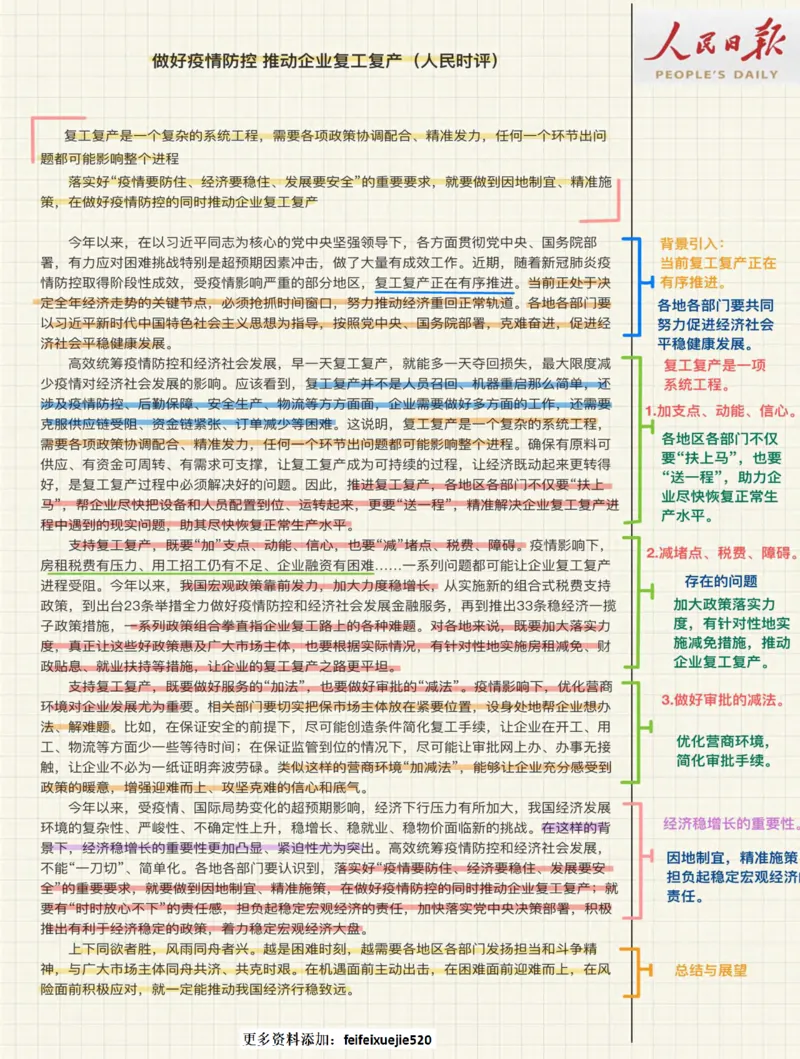 做好疫情防控 推动企业复工复产（人民时评）
人民日报
PEOPLE'S DAILY
复工复产是一个复杂的系统工程，需要各项政策协调配合、精准发力，任何一个环节出问
题都可能影响整个进程
落实好“疫情要防住、经济要稳住、发展要安全”的重要要求，就要做到因地制宜、精准施
策，在做好疫情防控的同时推动企业复工复产
今年以来，在以习近平同志为核心的党中央坚强领导下，各方面贯彻党中央、国务院部
署，有力应对困难挑战特别是超预期因素冲击，做了大量有成效工作。近期，随着新冠肺炎疫
情防控取得阶段性成效，受疫情影响严重的部分地区，复工复产正在有序推进。当前正处于决
定全年经济走势的关键节点，必须抢抓时间窗口，努力推动经济重回正常轨道。各地各部门要
以习近平新时代中国特色社会主义思想为指导，按照党中央、国务院部署，克难奋进，促进经
济社会平稳健康发展。
高效统筹疫情防控和经济社会发展，早一天复工复产，就能多一天夺回损失，最大限度减
少疫情对经济社会发展的影响。应该看到，复工复产并不是人员召回、机器重启那么简单，还
涉及疫情防控、后勤保障、安全生产、物流等方方面面，企业需要做好多方面的工作，还需要
克服供应链受阻、资金链紧张、订单减少等困难。这说明，复工复产是一个复杂的系统工程，
需要各项政策协调配合、精准发力，任何一个环节出问题都可能影响整个进程。确保有原料可
供应、有资金可周转、有需求可支撑，让复工复产成为可持续的过程，让经济既动起来更转得
好，是复工复产过程中必须解决好的问题。因此，推进复工复产，各地区各部门不仅要“扶上
马”，帮企业尽快把设备和人员配置到位、运转起来，更要“送一程”，精准解决企业复工复产进
程中遇到的现实问题，助其尽快恢复正常生产水平。
支持复工复产，既要“加”支点、动能、信心，也要“减”堵点、税费、障碍。疫情影响下，
房租税费有压力、用工招工仍有不足、企业融资有困难……一系列问题都可能让企业复工复产
进程受阻。今年以来，我国宏观政策靠前发力，加大力度稳增长，从实施新的组合式税费支持
政策，到出台23条举措全力做好疫情防控和经济社会发展金融服务，再到推出33条稳经济一揽
子政策措施，一系列政策组合拳直指企业复工路上的各种难题。对各地来说，既要加大落实力
度，真正让这些好政策惠及广大市场主体，也要根据实际情况，有针对性地实施房租减免、财
政贴息、就业扶持等措施，让企业的复工复产之路更平坦。
支持复工复产，既要做好服务的“加法”，也要做好审批的“减法”。疫情影响下，优化营商
环境对企业发展尤为重要。相关部门要切实把保市场主体放在紧要位置，设身处地帮企业想办
法、解难题。比如，在保证安全的前提下，尽可能创造条件简化复工手续，让企业在开工、用
工、物流等方面少一些等待时间；在保证监管到位的情况下，尽可能让审批网上办、办事无接
触，让企业不必为一纸证明奔波劳碌。类似这样的营商环境“加减法”，能够让企业充分感受到
政策的暖意，增强迎难而上、攻坚克难的信心和底气。
今年以来，受疫情、国际局势变化的超预期影响，经济下行压力有所加大，我国经济发展
环境的复杂性、严峻性、不确定性上升，稳增长、稳就业、稳物价面临新的挑战。在这样的背
景下，经济稳增长的重要性更加凸显、紧迫性尤为突出。高效统筹疫情防控和经济社会发展，
不能“一刀切”、简单化。各地各部门要认识到，落实好“疫情要防住、经济要稳住、发展要安
全”的重要要求，就要做到因地制宜、精准施策，在做好疫情防控的同时推动企业复工复产；就
要有“时时放心不下”的责任感，担负起稳定宏观经济的责任，加快落实党中央决策部署，积极
推出有利于经济稳定的政策，着力稳定宏观经济大盘。
上下同欲者胜，风雨同舟者兴。越是困难时刻，越需要各地区各部门发扬担当和斗争精
神，与广大市场主体同舟共济、共克时艰。在机遇面前主动出击，在困难面前迎难而上，在风
险面前积极应对，就一定能推动我国经济行稳致远。
背景引入：
当前复工复产正在
有序推进。
各地各部门要共同
努力促进经济社会
平稳健康发展。
复工复产是一项
系统工程。
1.加支点、动能、信心。
各地区各部门不仅
要“扶上马”，也要
“送一程”，助力企
业尽快恢复正常生
产水平。
2.减堵点、税费、障碍。
存在的问题
加大政策落实力
度，有针对性地实
施减免措施，推动
企业复工复产。
3.做好审批的减法。
优化营商环境，
简化审批手续。
经济稳增长的重要性。
因地制宜，精准施策
担负起稳定宏观经济的
责任。
总结与展望
更多资料添加：feifeixuejie520